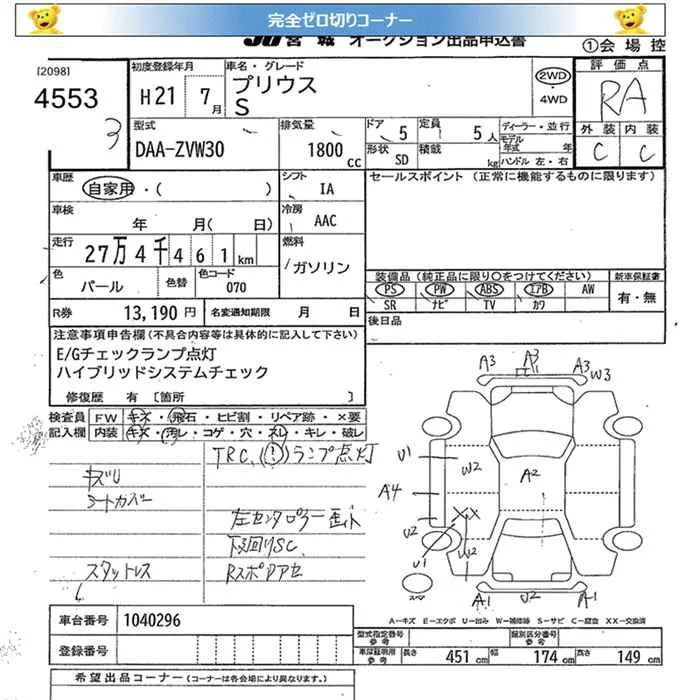 完全ゼロ切りコーナー
JU宮城 オークション出品申込書
①会場控
[2098]
4553
3
初度登録年月
H21 7月
車名・グレード
プリウス
S
2WD
4WD
評価点
RA
外装 内装
C C
型式
DAA-ZVW30
排気量
1800cc
ドア 5
定員 5人
形状 SD
積載 kg
ディーラー・並行
モデル年式 年
ハンドル 左・右
車歴
自家用・( )
シフト
IA
セールスポイント (正常に機能するものに限ります)
車検
年 月( 日)
冷房
AAC
走行
27万4千461km
燃料
ガソリン
色
パール
色替
色コード
070
装備品(純正品に限り○をつけてください)
新車保証書
PS PW ABS エアB AW
SR ナビ TV カワ
有・無
R券 13,190円
名変通知期限 月 日
後日品
注意事項申告欄(不具合内容等は具体的に記入して下さい)
E/Gチェックランプ点灯
ハイブリッドシステムチェック
修復歴 有 [箇所 ]
検査員記入欄
FW キズ・飛石・ヒビ割・リペア跡・×要
内装 キズ・汚レ・コゲ・穴・スレ・キレ・破レ
TRC、(!)ランプ点灯
シートカバー
下回りSC、
スタットレス
A3 A3 A3 W3
U1
W2
A2
A4
XX
U2
U1
W2
スペア
A1 U2 A1
A−キズ E−エクボ U−凹み W−補修跡 S−サビ C−腐食 XX−交換済
車台番号 1040296
登録番号
型式指定番号参考
類別区分番号参考
車庫証明用参考
長さ 451cm
幅 174cm
高さ 149cm
希望出品コーナー(コーナーは各会場により異なります。)